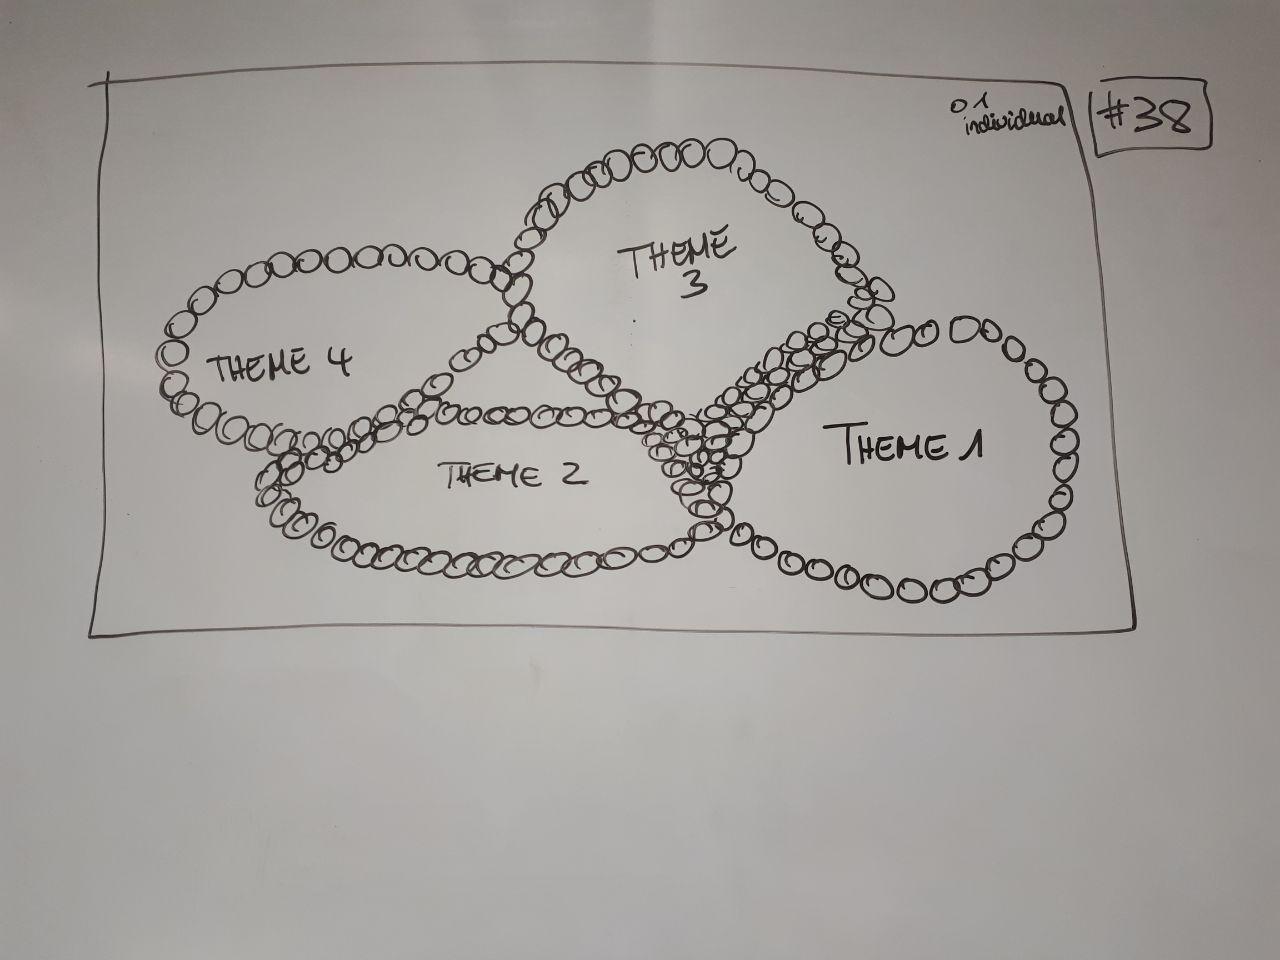 o 1
individual
#38
THEME
3
THEME 4
THEME 1
THEME 2